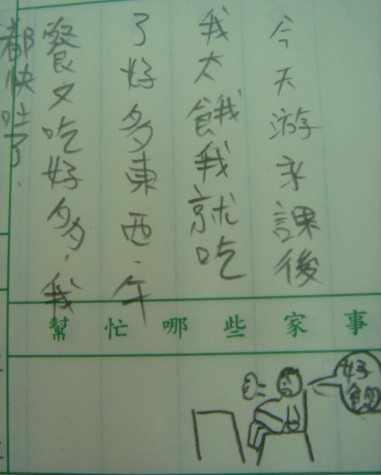 今天游永課後
我太餓我就吃
了好多東西,午
餐又吃好多,我
都快吐了.
幫忙哪些家事
好飽